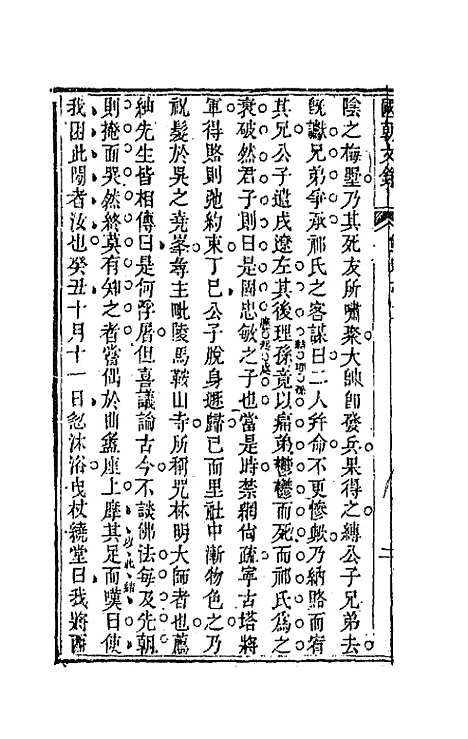 國朝文錄
二
陰之梅墅乃其死友所嘯聚大帥急發兵果得之縛公子兄弟去
既讞兄弟爭承祁氏之客謀曰二人并命不更慘歟乃納賂而宥
其兄公子遣戍遼左其後理孫竟以痛弟鬱鬱而死而祁氏爲之
衰破然君子則曰是固忠敏之子也當是時禁網尙疏寧古塔將
軍得賂則弛約束丁巳公子脫身遯歸已而里社中漸物色之乃
祝髮於吳之堯峯尋主毗陵馬鞍山寺所稱咒林明大師者也薦
紳先生皆相傳曰是何浮屠但喜議論古今不談佛法每及先朝
則掩面哭然終莫有知之者嘗偶於曲盝座上摩其足而嘆曰使
我困此間者汝也癸丑十月十一日忽沐浴曳杖繞堂曰我將西